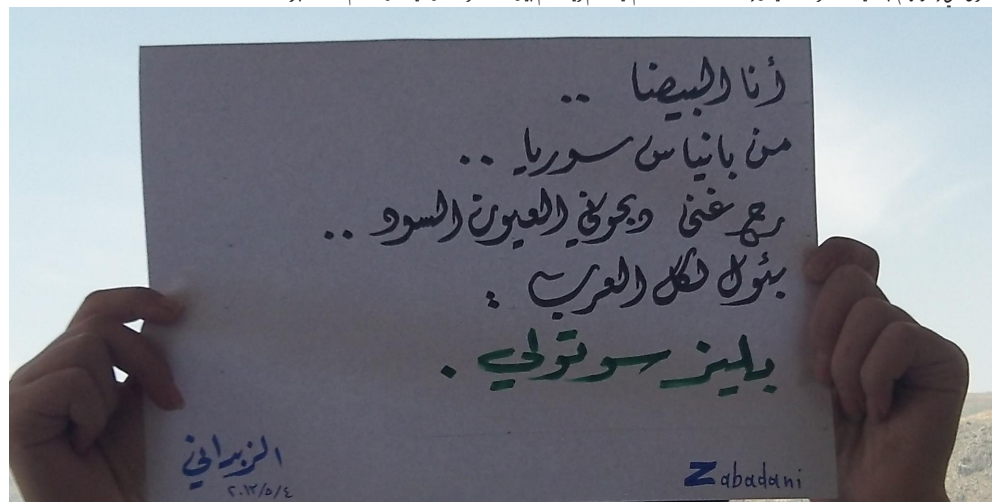 أنا البيضا ..
من بانياس سوريا ..
رح غني ويجوني العيون السود ..
بئول لكل العرب :
بليز سوتولي .
الزبداني
٢٠١٣/٥/٤
Zabadani